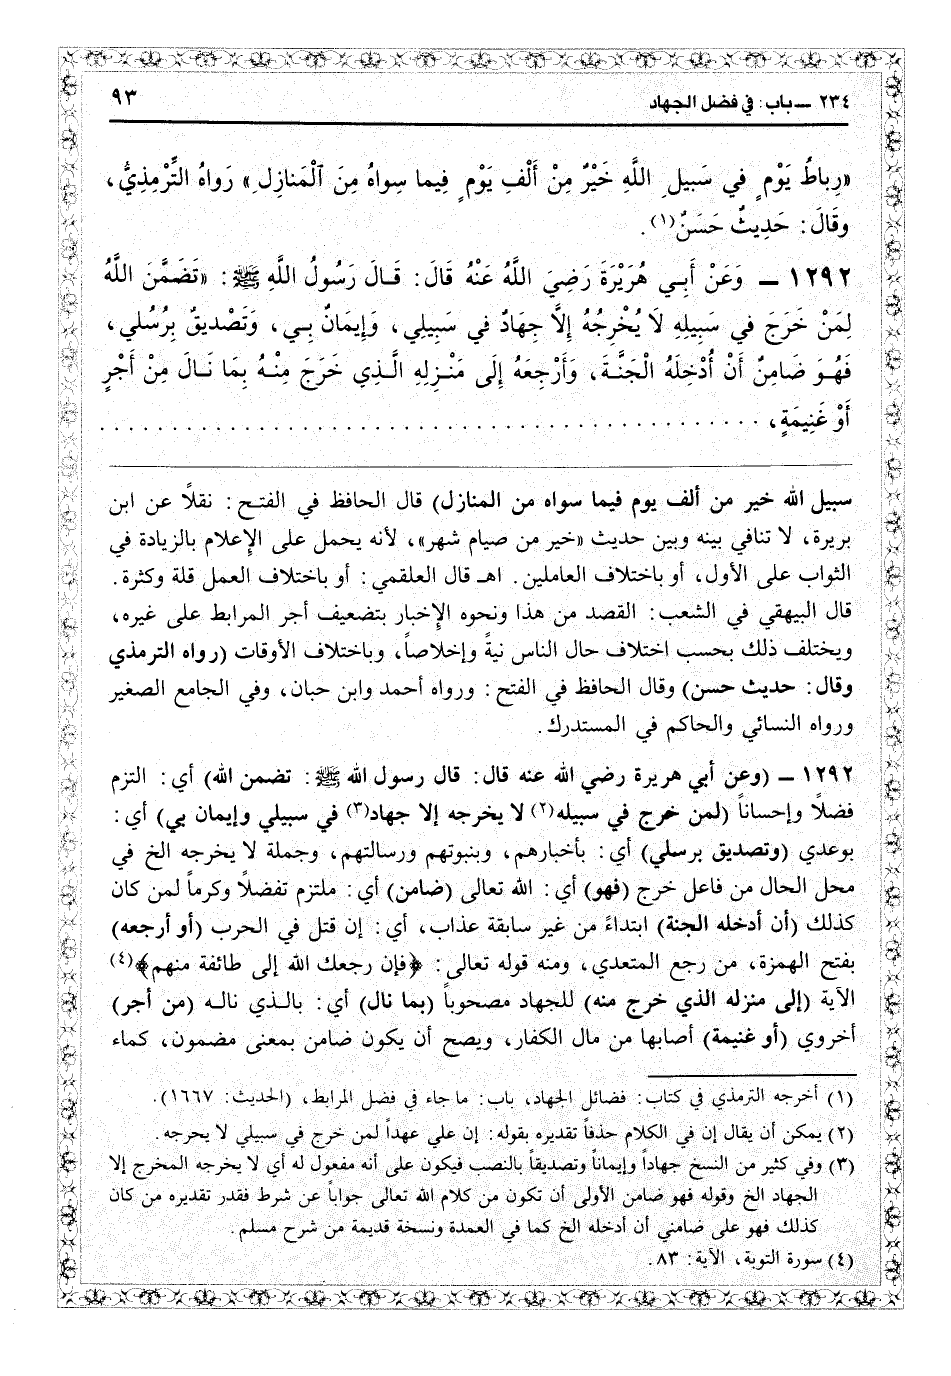 ٢٣٤ ــ باب: في فضل الجهاد ٩٣
«رِباطُ يَوْمٍ في سَبيلِ اللَّهِ خَيْرٌ مِنْ أَلْفِ يَوْمٍ فِيما سِواهُ مِنَ الْمَنازِلِ» رَواهُ التِّرْمِذِيُّ،
وقَالَ: حَدِيثٌ حَسَنٌ(١).
١٢٩٢ ــ وَعَنْ أَبِي هُرَيْرَةَ رَضِيَ اللَّهُ عَنْهُ قَالَ: قَالَ رَسُولُ اللَّهِ ﷺ: «تَضَمَّنَ اللَّهُ
لِمَنْ خَرَجَ في سَبِيلِهِ لَا يُخْرِجُهُ إِلَّا جِهَادٌ في سَبِيلِي، وَإِيمَانٌ بِي، وَتَصْدِيقٌ بِرُسُلي،
فَهُوَ ضَامِنٌ أَنْ أُدْخِلَهُ الْجَنَّةَ، وَأَرْجِعَهُ إِلَى مَنْزِلِهِ الَّذِي خَرَجَ مِنْهُ بِمَا نَالَ مِنْ أَجْرٍ
أَوْ غَنِيمَةٍ، . . . . . . . . . . . . . . . . . . . . . . . . . . . . . . . . . . . . . . . .
سبيل الله خير من ألف يوم فيما سواه من المنازل) قال الحافظ في الفتح: نقلاً عن ابن
بريرة، لا تنافي بينه وبين حديث «خير من صيام شهر»، لأنه يحمل على الإعلام بالزيادة في
الثواب على الأول، أو باختلاف العاملين. اهـ قال العلقمي: أو باختلاف العمل قلة وكثرة.
قال البيهقي في الشعب: القصد من هذا ونحوه الإخبار بتضعيف أجر المرابط على غيره،
ويختلف ذلك بحسب اختلاف حال الناس نيةً وإخلاصاً، وباختلاف الأوقات (رواه الترمذي
وقال: حديث حسن) وقال الحافظ في الفتح: ورواه أحمد وابن حبان، وفي الجامع الصغير
ورواه النسائي والحاكم في المستدرك.
١٢٩٢ ــ (وعن أبي هريرة رضي الله عنه قال: قال رسول الله ﷺ: تضمن الله) أي: التزم
فضلاً وإحساناً (لمن خرج في سبيله(٢) لا يخرجه إلا جهاد(٣) في سبيلي وإيمان بي) أي:
بوعدي (وتصديق برسلي) أي: بأخبارهم، وبنبوتهم ورسالتهم، وجملة لا يخرجه الخ في
محل الحال من فاعل خرج (فهو) أي: الله تعالى (ضامن) أي: ملتزم تفضلاً وكرماً لمن كان
كذلك (أن أدخله الجنة) ابتداءً من غير سابقة عذاب، أي: إن قتل في الحرب (أو أرجعه)
بفتح الهمزة، من رجع المتعدي، ومنه قوله تعالى: ﴿فإن رجعك الله إلى طائفة منهم﴾(٤)
الآية (إلى منزله الذي خرج منه) للجهاد مصحوباً (بما نال) أي: بالذي ناله (من أجر)
أخروي (أو غنيمة) أصابها من مال الكفار، ويصح أن يكون ضامن بمعنى مضمون، كماء
(١) أخرجه الترمذي في كتاب: فضائل الجهاد، باب: ما جاء في فضل المرابط، (الحديث: ١٦٦٧).
(٢) يمكن أن يقال إن في الكلام حذفاً تقديره بقوله: إن علي عهداً لمن خرج في سبيلي لا يخرجه.
(٣) وفي كثير من النسخ جهاداً وإيماناً وتصديقاً بالنصب فيكون على أنه مفعول له أي لا يخرجه المخرج إلا
الجهاد الخ وقوله فهو ضامن الأولى أن تكون من كلام الله تعالى جواباً عن شرط فقدر تقديره من كان
كذلك فهو على ضامني أن أدخله الخ كما في العمدة ونسخة قديمة من شرح مسلم.
(٤) سورة التوبة، الآية: ٨٣.